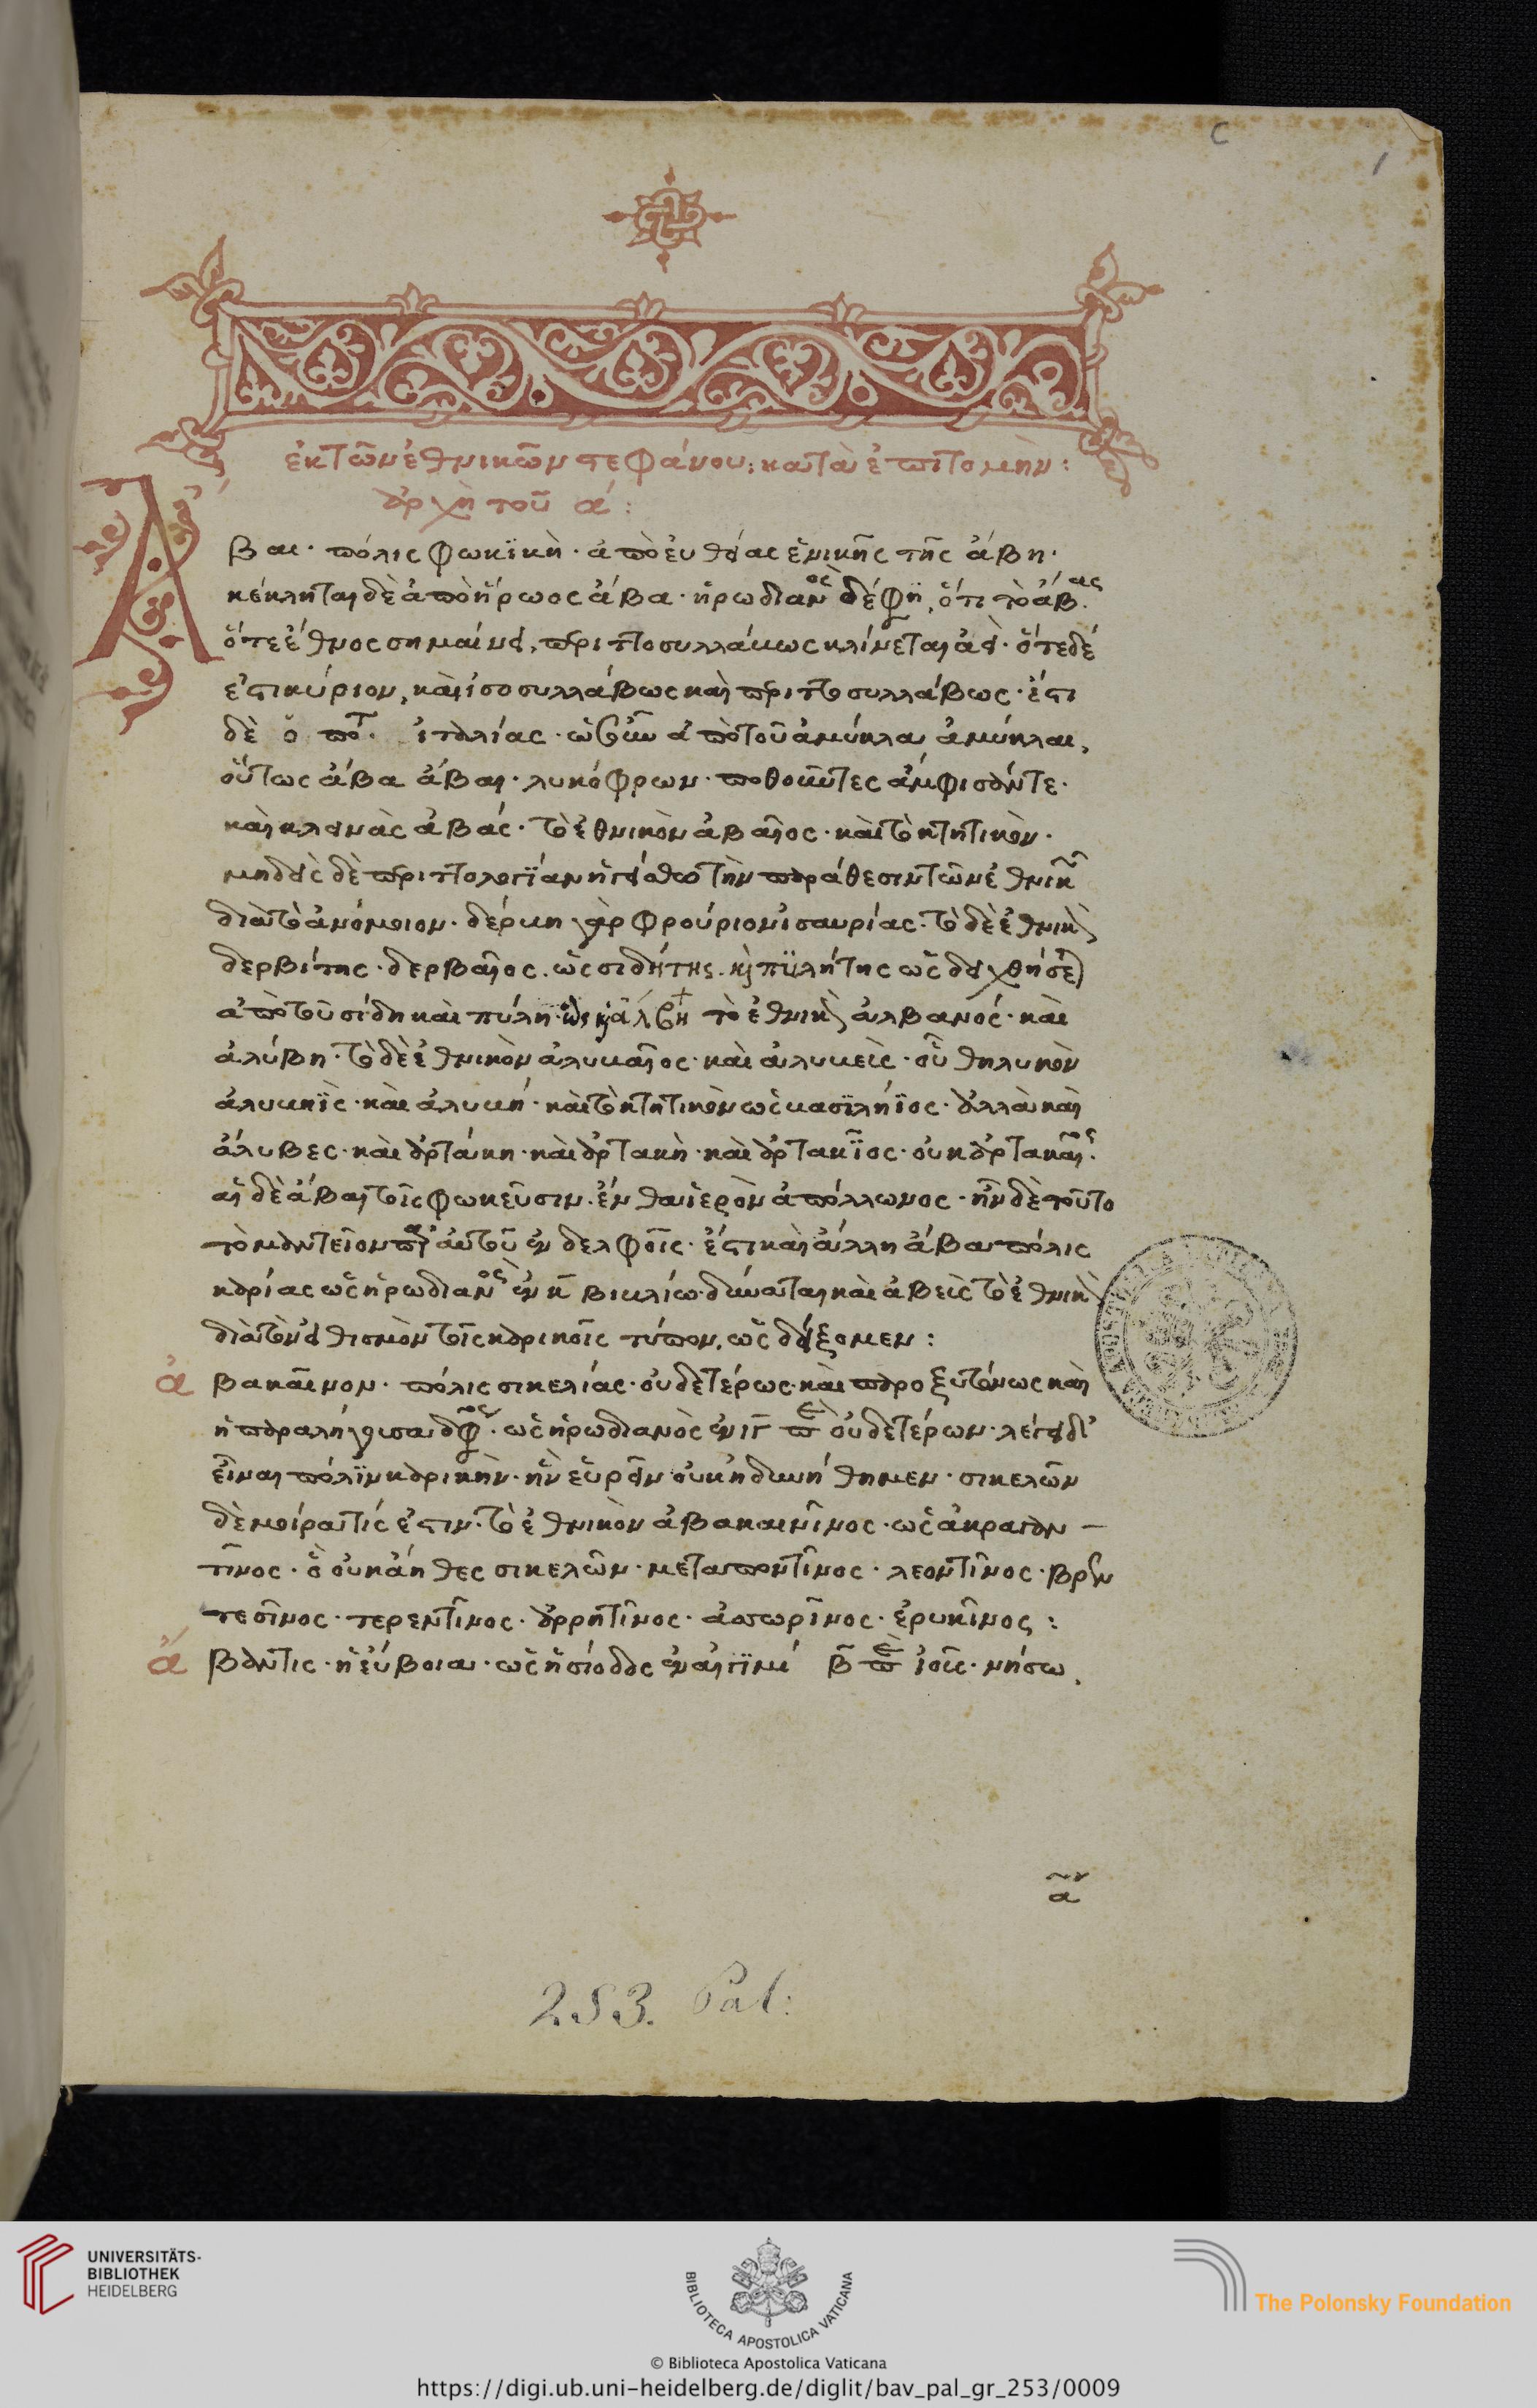 C
1
ἐκ τῶν ἐθνικῶν στεφάνου: κατὰ ἐπιτομὴν:
ἀρχὴ τοῦ α:
Α
βαι· πόλις φωκϊκὴ· ἀπὸ εὐθείας ἑνικῆς τῆς ἄβη·
κέκληται δὲ ἀπὸ ἥρωος ἄβα· ἡρωδιανὸς δέ φη, ὅτι τὸ ἄβας
ὅτε ἔθνος σημαίνει, περιττοσυλλάβως κλίνεται ἀεὶ· ὅτε δέ
ἐστι κύριον, καὶ ἰσοσυλλάβως καὶ περιττοσυλλάβως· ἔστι
δὲ ἰταλίας· ἀπὸ τοῦ ἀμύκλα ἀμύκλαι,
οὕτως ἄβα ἄβαι· λυκόφρων· ποθοῦντες ἀμφίσσαν τε·
καὶ κλεινὰς ἄβας· τὸ ἐθνικὸν ἀβαῖος· καὶ τὸ κτητικὸν·
μηδεὶς δὲ περιττολογίαν ἡγείσθω τὴν παράθεσιν τῶν ἐθνικῶν
διὰ τὸ ἀνόμοιον· δέρβη γὰρ φρούριον ἰσαυρίας· τὸ δὲ ἐθνικὸν
δερβίτης· δερβαῖος· ὡς σιδήτης· καὶ πϋλήτης ὡς δειχθήσεται
ἀπὸ τοῦ σίδη καὶ πύλη· ὡς καὶ ἄλβη τὸ ἐθνικὸν ἀλβανός· καὶ
ἀλύβη· τὸ δὲ ἐθνικὸν ἀλυβαῖος· καὶ ἀλυβεὺς· οὗ θηλυκὸν
ἀλυβηῒς· καὶ ἀλυβή· καὶ τὸ κτητικὸν ὡς βασϊλήϊος· ἀλλὰ καὶ
ἄλυβες· καὶ ἀρτάκη· καὶ ἀρτακὴ· καὶ ἀρτακῖος· οὐκ ἀρτακαῖος·
αἱ δὲ ἄβαι τοῖς φωκεῦσιν· ἔνθα ἱερὸν ἀπόλλωνος· ἦν δὲ τοῦτο
τὸ μαντεῖον αὐτοῦ ἐν δελφοῖς· ἔστι καὶ ἄλλη ἄβαι πόλις
καρίας ὡς ἡρωδιανὸς ἐν κ βιβλίω· δύναται καὶ ἀβεὺς τὸ ἐθνικὸν
διὰ τὸν εἰθισμὸν τοῖς καρικοῖς τύπον, ὡς δείξομεν:
ἀβακαῖνον· πόλις σικελίας· οὐδετέρως· καὶ προξυτόνως καὶ
ἡ παραλήγουσα δίφθογγος· ὡς ἡρωδιανὸς ἐν ιγ περὶ οὐδετέρων· λέγει δὲ
εἶναι πόλϊν καρικὴν· ἣν εὑρεῖν οὐκ ἠδυνήθημεν· σικελῶν
δὲ μοῖρα τίς ἐστιν· τὸ ἐθνικὸν ἀβακαινῖνος· ὡς ἀκραγαν-
τῖνος· ὃ οὐκ ἄηθες σικελῶν· μεταποντῖνος· λεοντῖνος· βρεν
τεσῖνος· τερεντῖνος· ἀρρητῖνος· ἀσσωρῖνος· ἐρυκῖνος:
ἀβαντις· ἡ εὔβοια· ὡς ἡσίοδος ἐν αἰγϊμί β περὶ ἰοῦς· νήσω,
α
253. Pal:
UNIVERSITÄTS-
BIBLIOTHEK
HEIDELBERG
BIBLIOTECA APOSTOLICA VATICANA
The Polonsky Foundation
© Biblioteca Apostolica Vaticana
https://digi.ub.uni-heidelberg.de/diglit/bav_pal_gr_253/0009